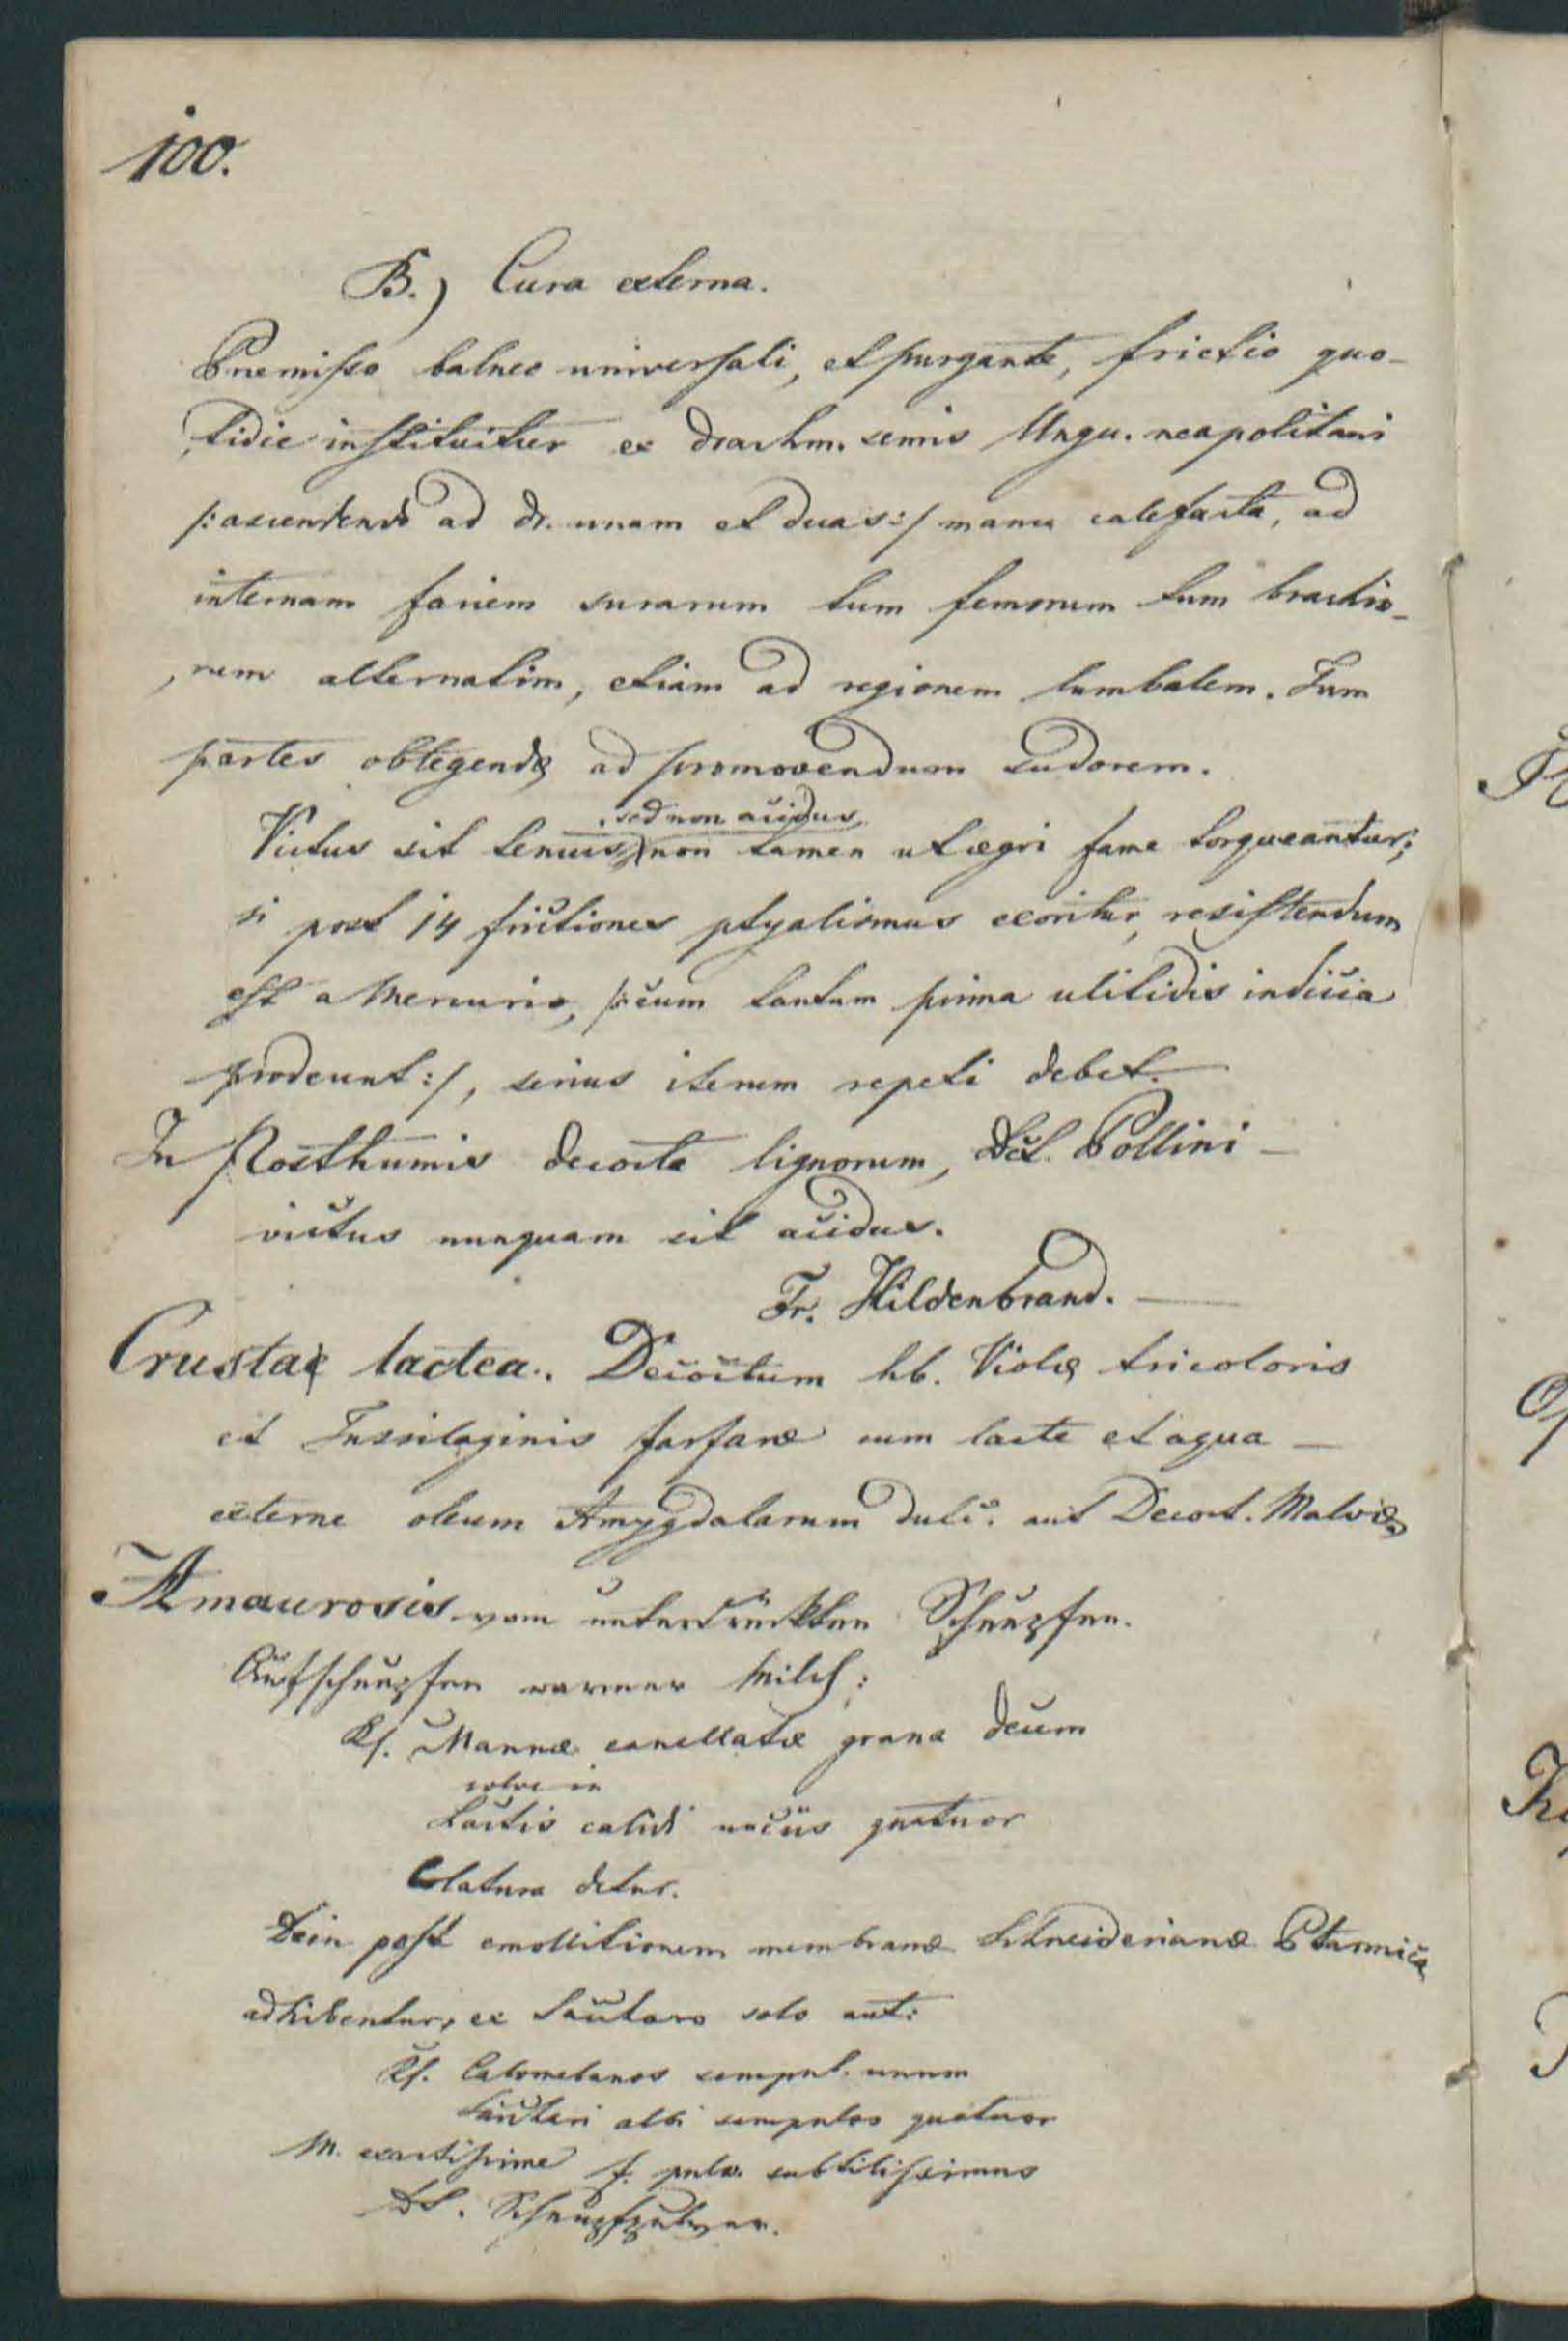 100.
B.) Cura externa.
Praemisso balneo universali, et purgante, frictio quo-
tidie instituitur ex drachm. semis Ungu. neapolitani
/: ascendendo ad dr. unam et duas :/ manu calefacta, ad
internam faciem surarum tum femorum tum brachio-
rum alternatim, etiam ad regionem lumbalem. Tum
partes obtegendę ad promovendum sudorem.
sed non acidus
Victus sit tenuis, non tamen ut ægri fame torqueantur;
si post 14 frictiones ptyalismus exoritur, resistendum
est a Mercurio, /: cum tantum prima
prodeunt :/, serius iterum repeti debet.
In Posthumis decocta lignorum, Dct. Pollini —
victus nunquam sit acidus.
Fr. Hildenbrand. —
Crustae lactea. Decoctum hb. Violę tricoloris
et Tussilaginis farfaræ cum lacte et aqua —
externe oleum Amygdalarum dulc. aut Decoct. Malvæ
Amaurosis vom unterdrückten Schnupfen.
Aufschnupfen warmer Milch:
Rf. Mannæ canellatæ grana decem
solve in
Lactis calidi unciis quatuor
Colatura detur.
Dein post emollitionem membranæ Schneiderianæ Ptarmica
adhibentur, ex Saccharo solo aut:
Rf. Calomelanos scrupul. unum
Sacchari albi scrupulos quatuor
M. exactissime f. pulv. subtilissimus
DS. Schnupfpulver.